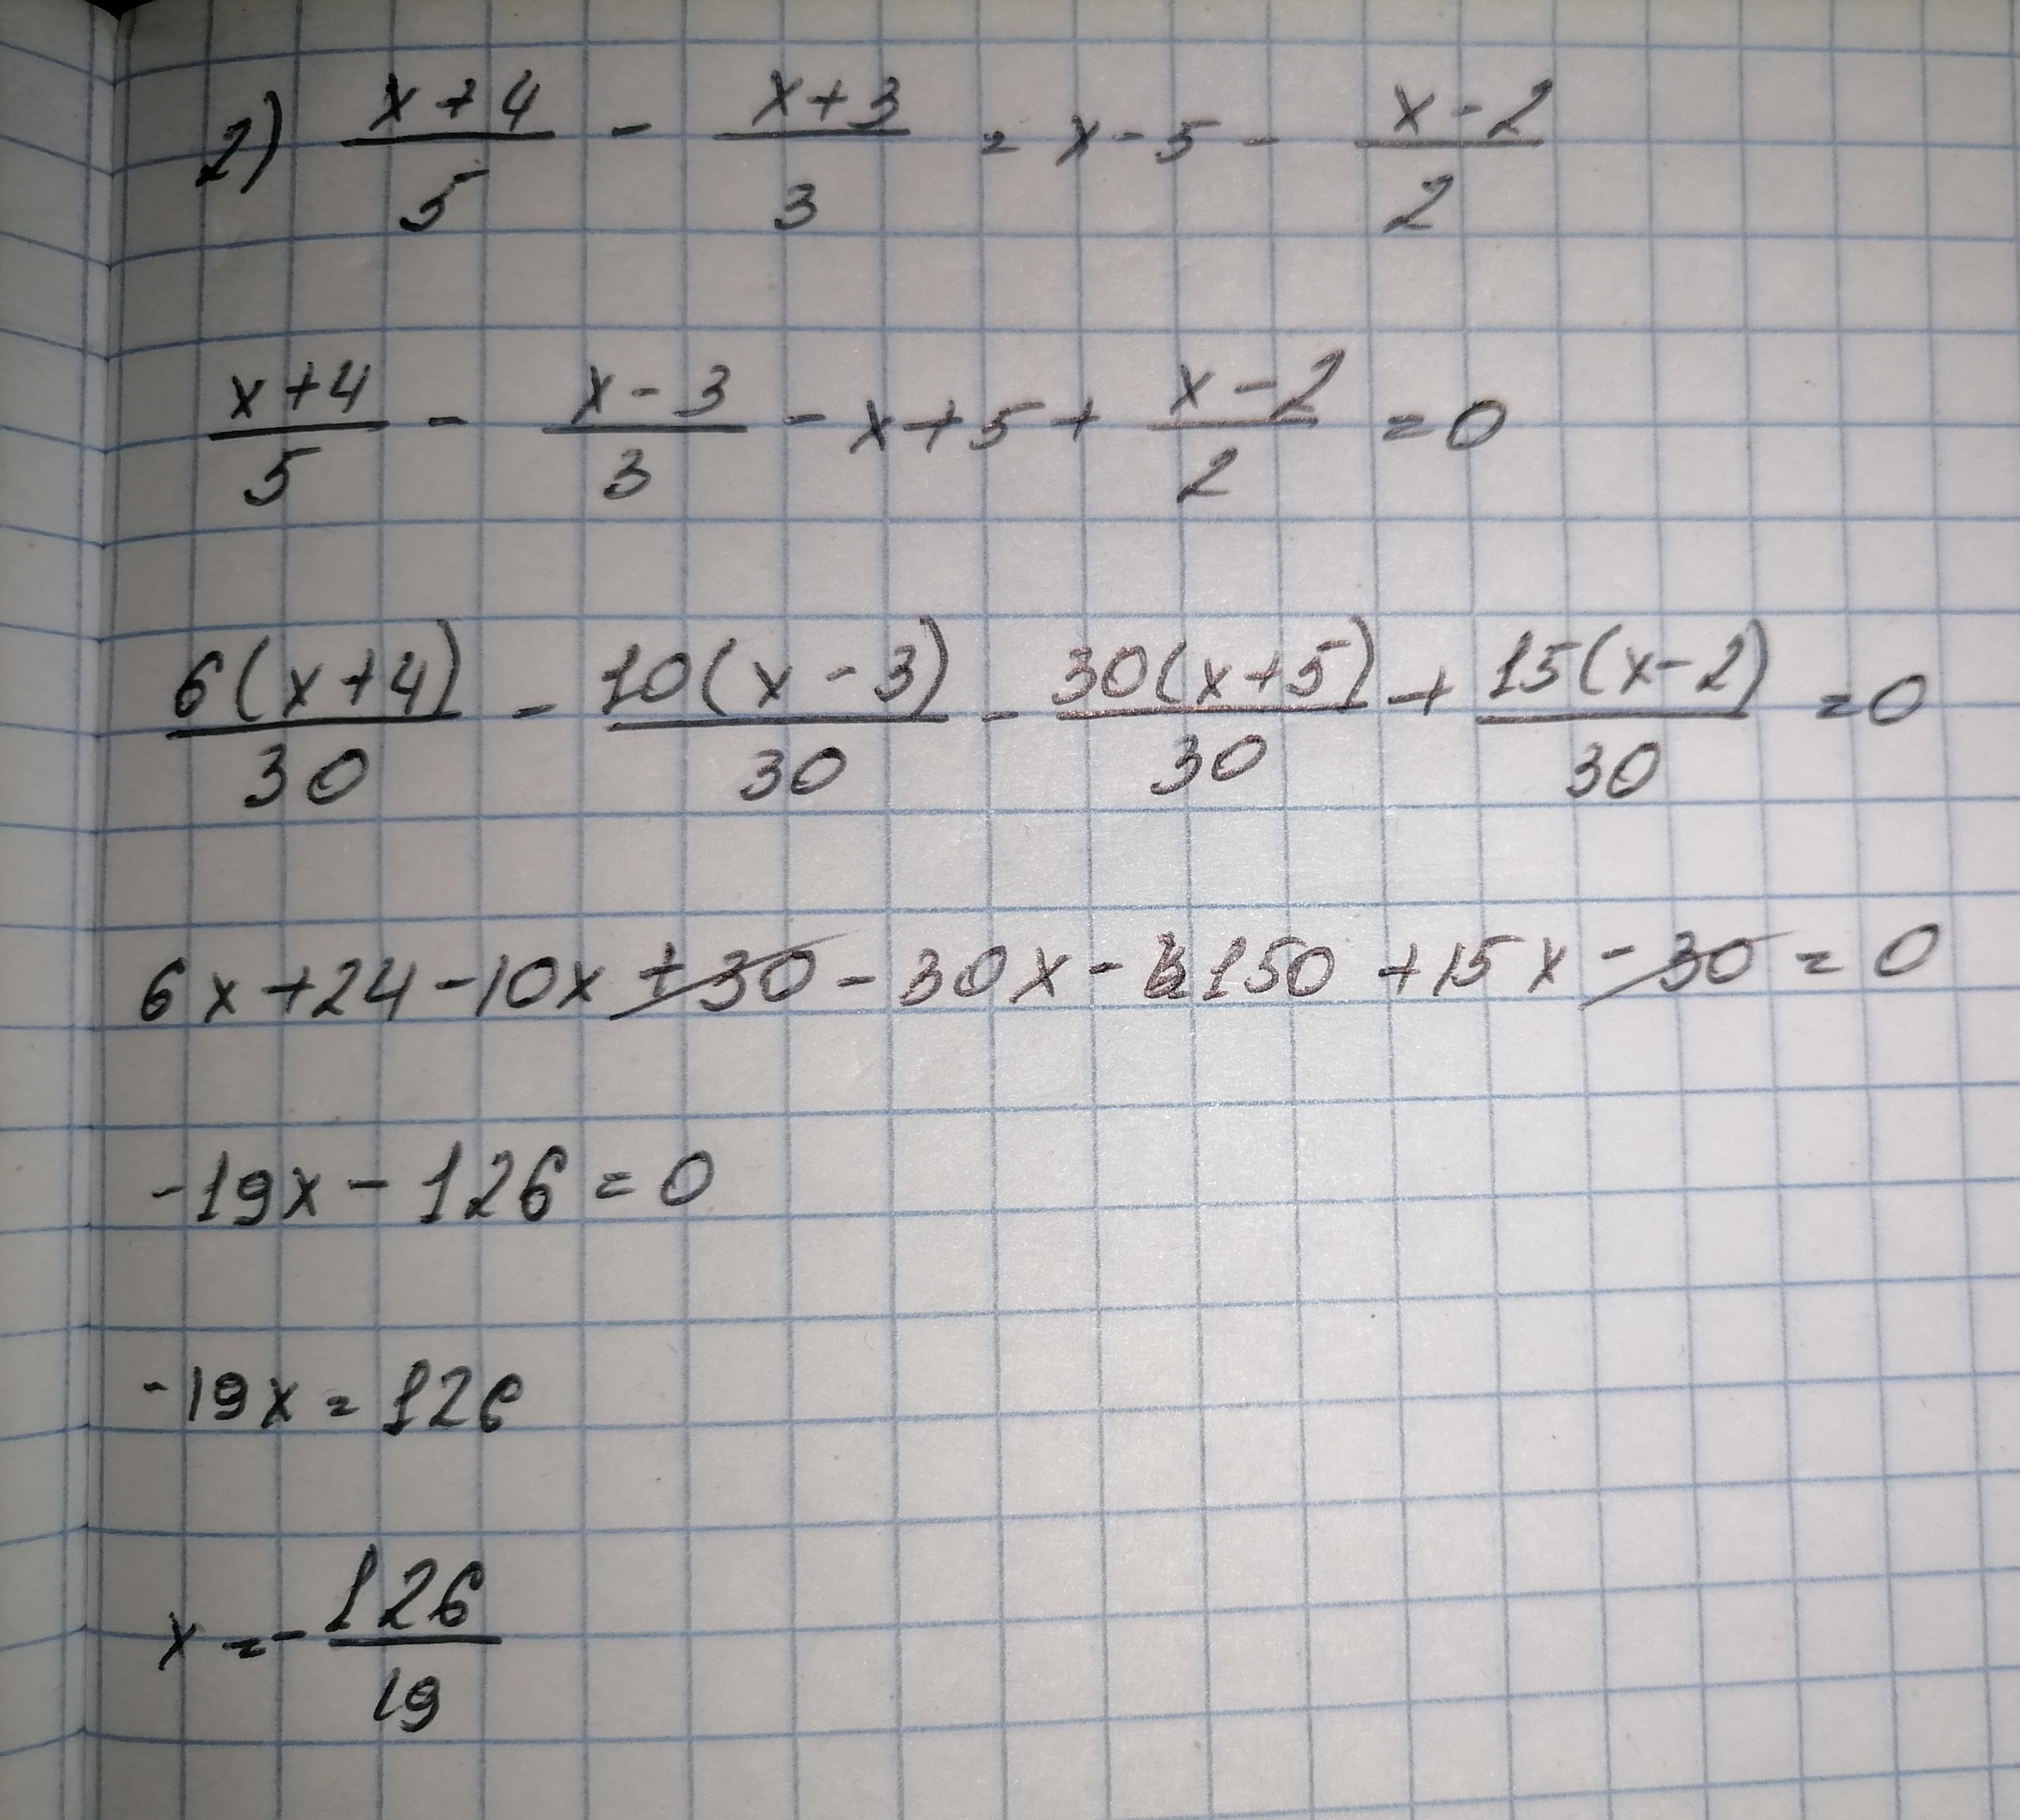 2) (x+4)/5 - (x+3)/3 = x-5 - (x-2)/2
(x+4)/5 - (x-3)/3 - x+5+ (x-2)/2 =0
6(x+4)/30 - 10(x-3)/30 - 30(x+5)/30 + 15(x-2)/30 =0
6x+24-10x+30-30x-150+15x-30=0
-19x-126=0
-19x=126
x=-126/19